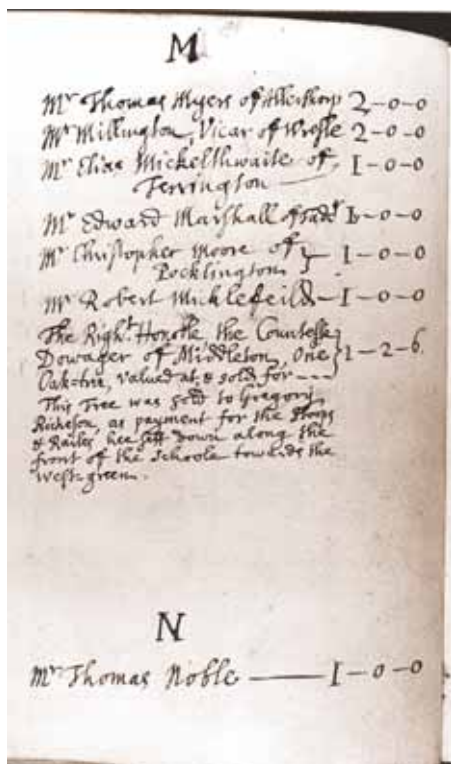 M
Mr Thomas Myers of Allerthorp 2-0-0
Mr Millington, Vicar of Wresle 2-0-0
Mr Elias Mickelthwaite of 1-0-0
Terrington
Mr Edward Marshall of 1-0-0
Mr Christopher Moore of } 1-0-0
Pocklington
Mr Robert Micklefeild 1-0-0
The Right Honoble, the Countesse
Dowager of Middleton, One } 1-2-6.
Oak-tree, valued at, & sold for ---
This Tree was sold to Gregory
Rickeson, as payment for the Stoops
& Railes hee sett down along the
front of the Schoole towards the
West-green.
N
Mr Thomas Noble 1-0-0